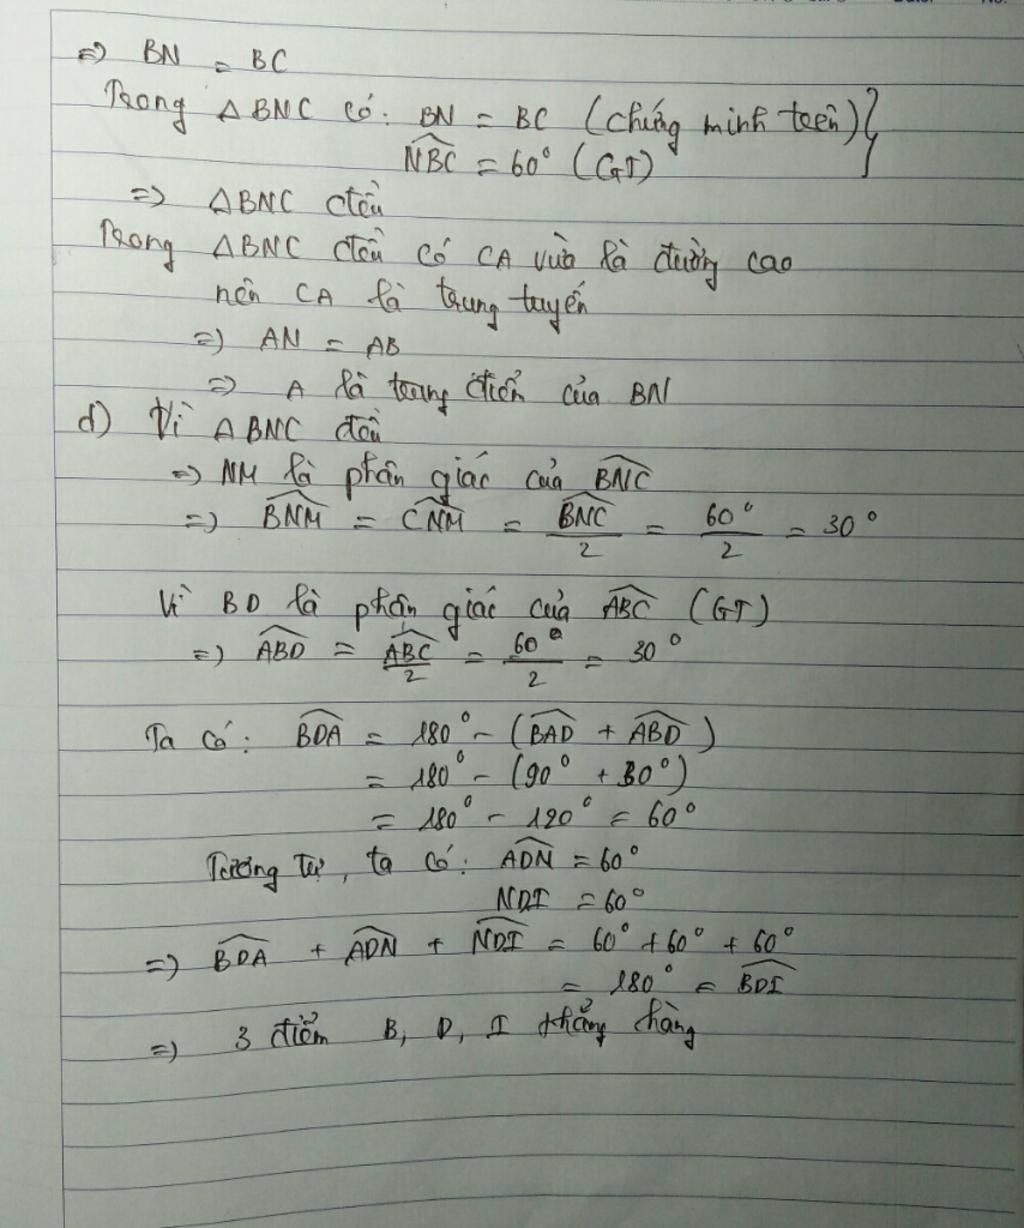 => BN = BC
Trong ΔBNC có: BN = BC (chứng minh trên)}
NBC = 60° (GT)
=> ΔBNC đều
Trong ΔBNC đều có CA vừa là đường cao
nên CA là trung tuyến
=> AN = AB
=> A là trung điểm của BN
d) Vì ΔBNC đều
=> NM là phân giác của BNC
=> BNM = CNM = BNC/2 = 60°/2 = 30°
Vì BD là phân giác của ABC (GT)
=> ABD = ABC/2 = 60°/2 = 30°
Ta có: BDA = 180° - (BAD + ABD)
= 180° - (90° + 30°)
= 180° - 120° = 60°
Tương tự, ta có: ADN = 60°
NDI = 60°
=> BDA + ADN + NDI = 60° + 60° + 60°
= 180° = BDI
=> 3 điểm B, D, I thẳng hàng